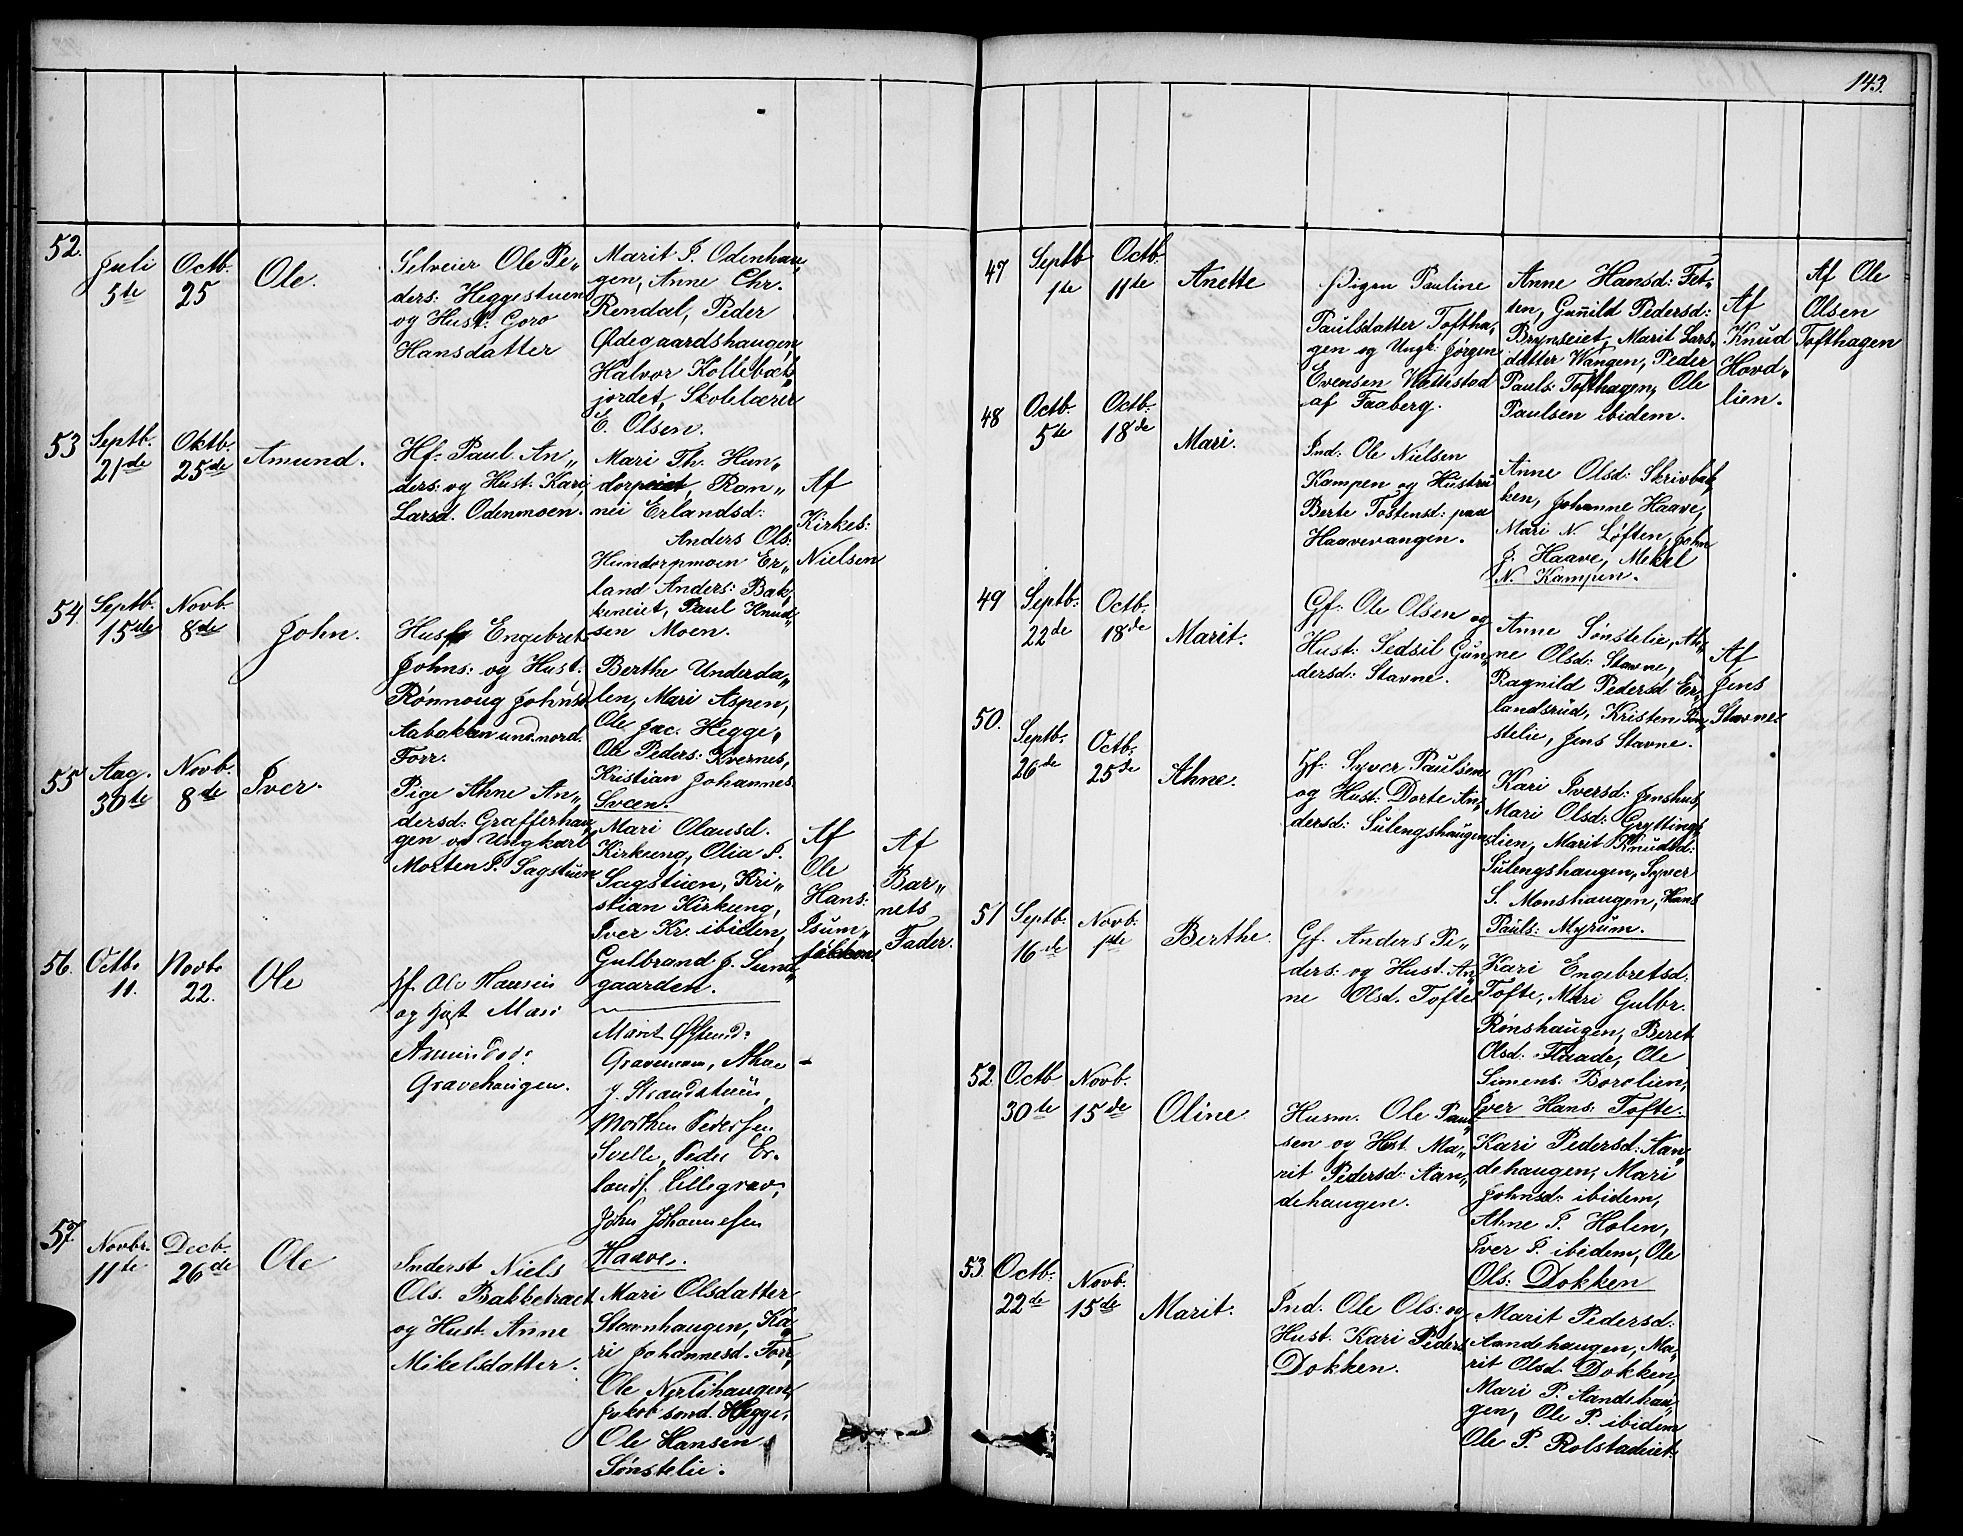 143.
52.
Juli
5te
Octb.
25
Ole.
Selveier Ole Pe„
ders: Heggestuen
og Hust: Goro
Hansdatter
Marit P. Odenhau„
gen, Anne Chr.
Rendal, Peder
Ødegaardshaugen,
Halvor Kollebæk„
jordet, Skolelærer
E. Olsen.
53
Septb.
21de
Oktb.
25de
Amund.
Hf. Paul An„
ders: og Hust. Kari
Larsd. Odenmoen.
Mari Th. Hun„
dorpeiet, Ran„
nei Erlandsd:
Anders Ols:
Hundorpmoen Er„
land Anders: Bak„
keneiet, Paul Knud„
sen Moen.
Af
Kirkes:
Nielsen
54.
Septb.
15de
Novb.
8de
John.
Husf Engebret
Johns: og Hust.
Rønnoug Johnsd
Aabakken und. nord.
Forr.
Berthe Underda„
len, Mari Aspen,
Ole Jac. Hegge„
Ole Peders: Kvernes,
Kristian Johannes
Sveen.
55
Aug.
30te
Novb.
8de
Iver.
Pige Ahne An„
dersd: Grafferhau„
gen og Ungkarl
Morten P. Sagstuen
Mari Olausd.
Kirkeng, Olia P.
Sagstuen, Kri„
stian Kirkeng,
Iver Kr. ibiden,
Gulbrand J. Sund„
gaarden.
Af
Ole
Hans:
Isum„
løkken
Af
Bar„
nets
Fader.
56.
Octb.
11.
Novb.
22.
Ole
Hf. Ole Hansen
og Hust Mari
Amundsd:
Gravehaugen.
Marit Østend:
Gravemoen, Ahne
J. Strandstuen,
Morthen Pedersen
Svelle, Peder Er„
lands. Lillegrav,
John Johannesen
Haave.
57.
Novbr.
11te
Decb.
26de
Ole
Inderst Niels
Ols. Bakketræet
og Hust. Anne
Mikelsdatter.
Mari Olsdatter
Stavnhaugen, Ka„
ri Johannesd. Forr,
Ole Nerlihaugen,
Jakob sønd. Hegge,
Ole Hansen
Sønstelie.
47
Septb
1te
Octb.
11te
Anette
Pigen Pauline
Paulsdatter Toftha„
gen og Ungk. Jørgen
Evensen Wættestad
af Faaberg.
Anne Hansd: Fet„
ten, Gunild Pedersd:
Brynseiet, Marit Lars„
datter Wangen, Peder
Pauls: Tofthagen, Ole
Paulsen ibidem.
Af
Knud
Hovd„
lien.
Af Ole
Olsen
Tofthagen
48
Octb.
5te
Octb.
18de
Mari.
Ind: Ole Nielsen
Kampen og Hustru
Berte Tostensd: paa
Haavevangen.
Anne Olsd: Skrivbak„
ken, Johanne Haave,
Mari N. Løften, John
J. Haave, Mekel
N. Kampen.
49
Septb:
22de
Octb.
18de
Marit.
Gf: Ole Olsen og
Hust: Sedsil Gun„
dersd: Stavne.
Anne Sønstelie, Ah„
ne Olsd: Stavne,
Ragnild Pedersd Er„
landsrud, Kristen Søn„
stelie, Jens Stavne.
Af
Jens
Stavne
50.
Septb.
26de
Octb.
25de
Ahne.
Hf: Syver Paulsen
og Hust: Dorte An„
dersd: Sulengshaugen.
Kari Iversd: Jenshus,
Mari Olsd: Gryttings„
lien, Marit Knudsd:
Sulengshaugen, Syver
S. Monshaugen, Hans
Pauls: Myrum.
51
Septb:
16de
Novb.
1te
Berthe.
Gf. Anders Pe„
ders: og Hust. An„
ne Olsd. Tofte
Kari Engebretsd:
Tofte, Mari Gulbr.
Rønshaugen, Beret
Olsd: Flaade, Ole
Simens: Borolien,
Iver Hans: Tofte.
52
Octb
30te
Novb.
15de
Oline
Husm. Ole Paul„
sen og Hust Ma„
rit Pedersd: Aan„
dehaugen.
Kari Pedersd: Aan„
dehaugen, Mari
Johnsd: ibidem,
Ahne P. Holen,
Iver P. ibidem, Ole
Ols: Dokken
53.
Octb:
22de
Novb.
15de
Marit.
Ind: Ole Ols: og
Hust. Kari Peders
Dokken.
Marit Pedersd:
Aandehaugen, Ma„
rit Olsd. Dokken,
Mari P. Aandehau„
gen, Ole P. ibidem
Ole P. Rolstadeiet.